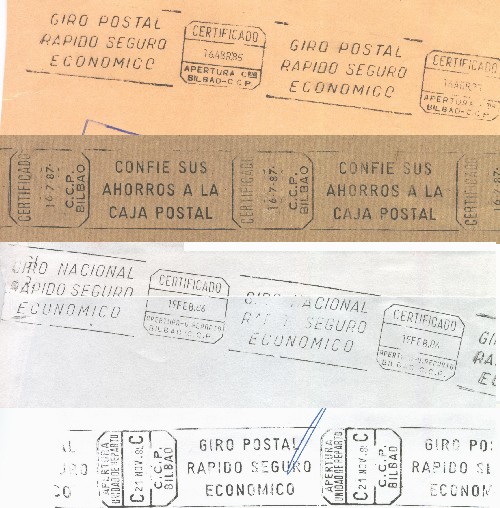 GIRO POSTAL
RAPIDO SEGURO
ECONOMICO
CERTIFICADO
16ABR85
APERTURA CTAS
BILBAO-C.C.P.
GIRO POSTAL
RAPIDO SEGURO
ECONOMICO
CERTIFICADO
16ABR85
APERTURA
BILBAO-C.C.P.
CERTIFICADO
16-7-87-
C.C.P.
BILBAO
CONFIE SUS
AHORROS A LA
CAJA POSTAL
CERTIFICADO
16-7-87-
C.C.P.
BILBAO
CONFIE SUS
AHORROS A LA
CAJA POSTAL
CERTIFICADO
GIRO NACIONAL
RAPIDO SEGURO
ECONOMICO
CERTIFICADO
15FEB.86
APERTURA-U.REPARTO
BILBAO-C.C.P.
GIRO NACIONAL
RAPIDO SEGURO
ECONOMICO
CERTIFICADO
15FEB.86
APERTURA-U.REPARTO
BILBAO-C.C.P.
GI
RA
E
CO
APERTURA
UNIDAD DE REPARTO
C 21 NOV.8 C
C.C.P.
BILBAO
GIRO POSTAL
RAPIDO SEGURO
ECONOMICO
APERTURA
UNIDAD DE REPARTO
C 21 NOV.8 C
C.C.P.
BILBAO
GIRO POS
RAPIDO SE
ECONOM